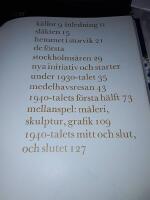 källor 9 inledning 11
släkten 15
hemmet i storvik 21
de första
stockholmsåren 29
nya initiativ och starter
under 1930-talet 35
medelhavsresan 43
1940-talets första hälft 73
mellanspel: måleri,
skulptur, grafik 109
1940-talets mitt och slut,
och slutet 127